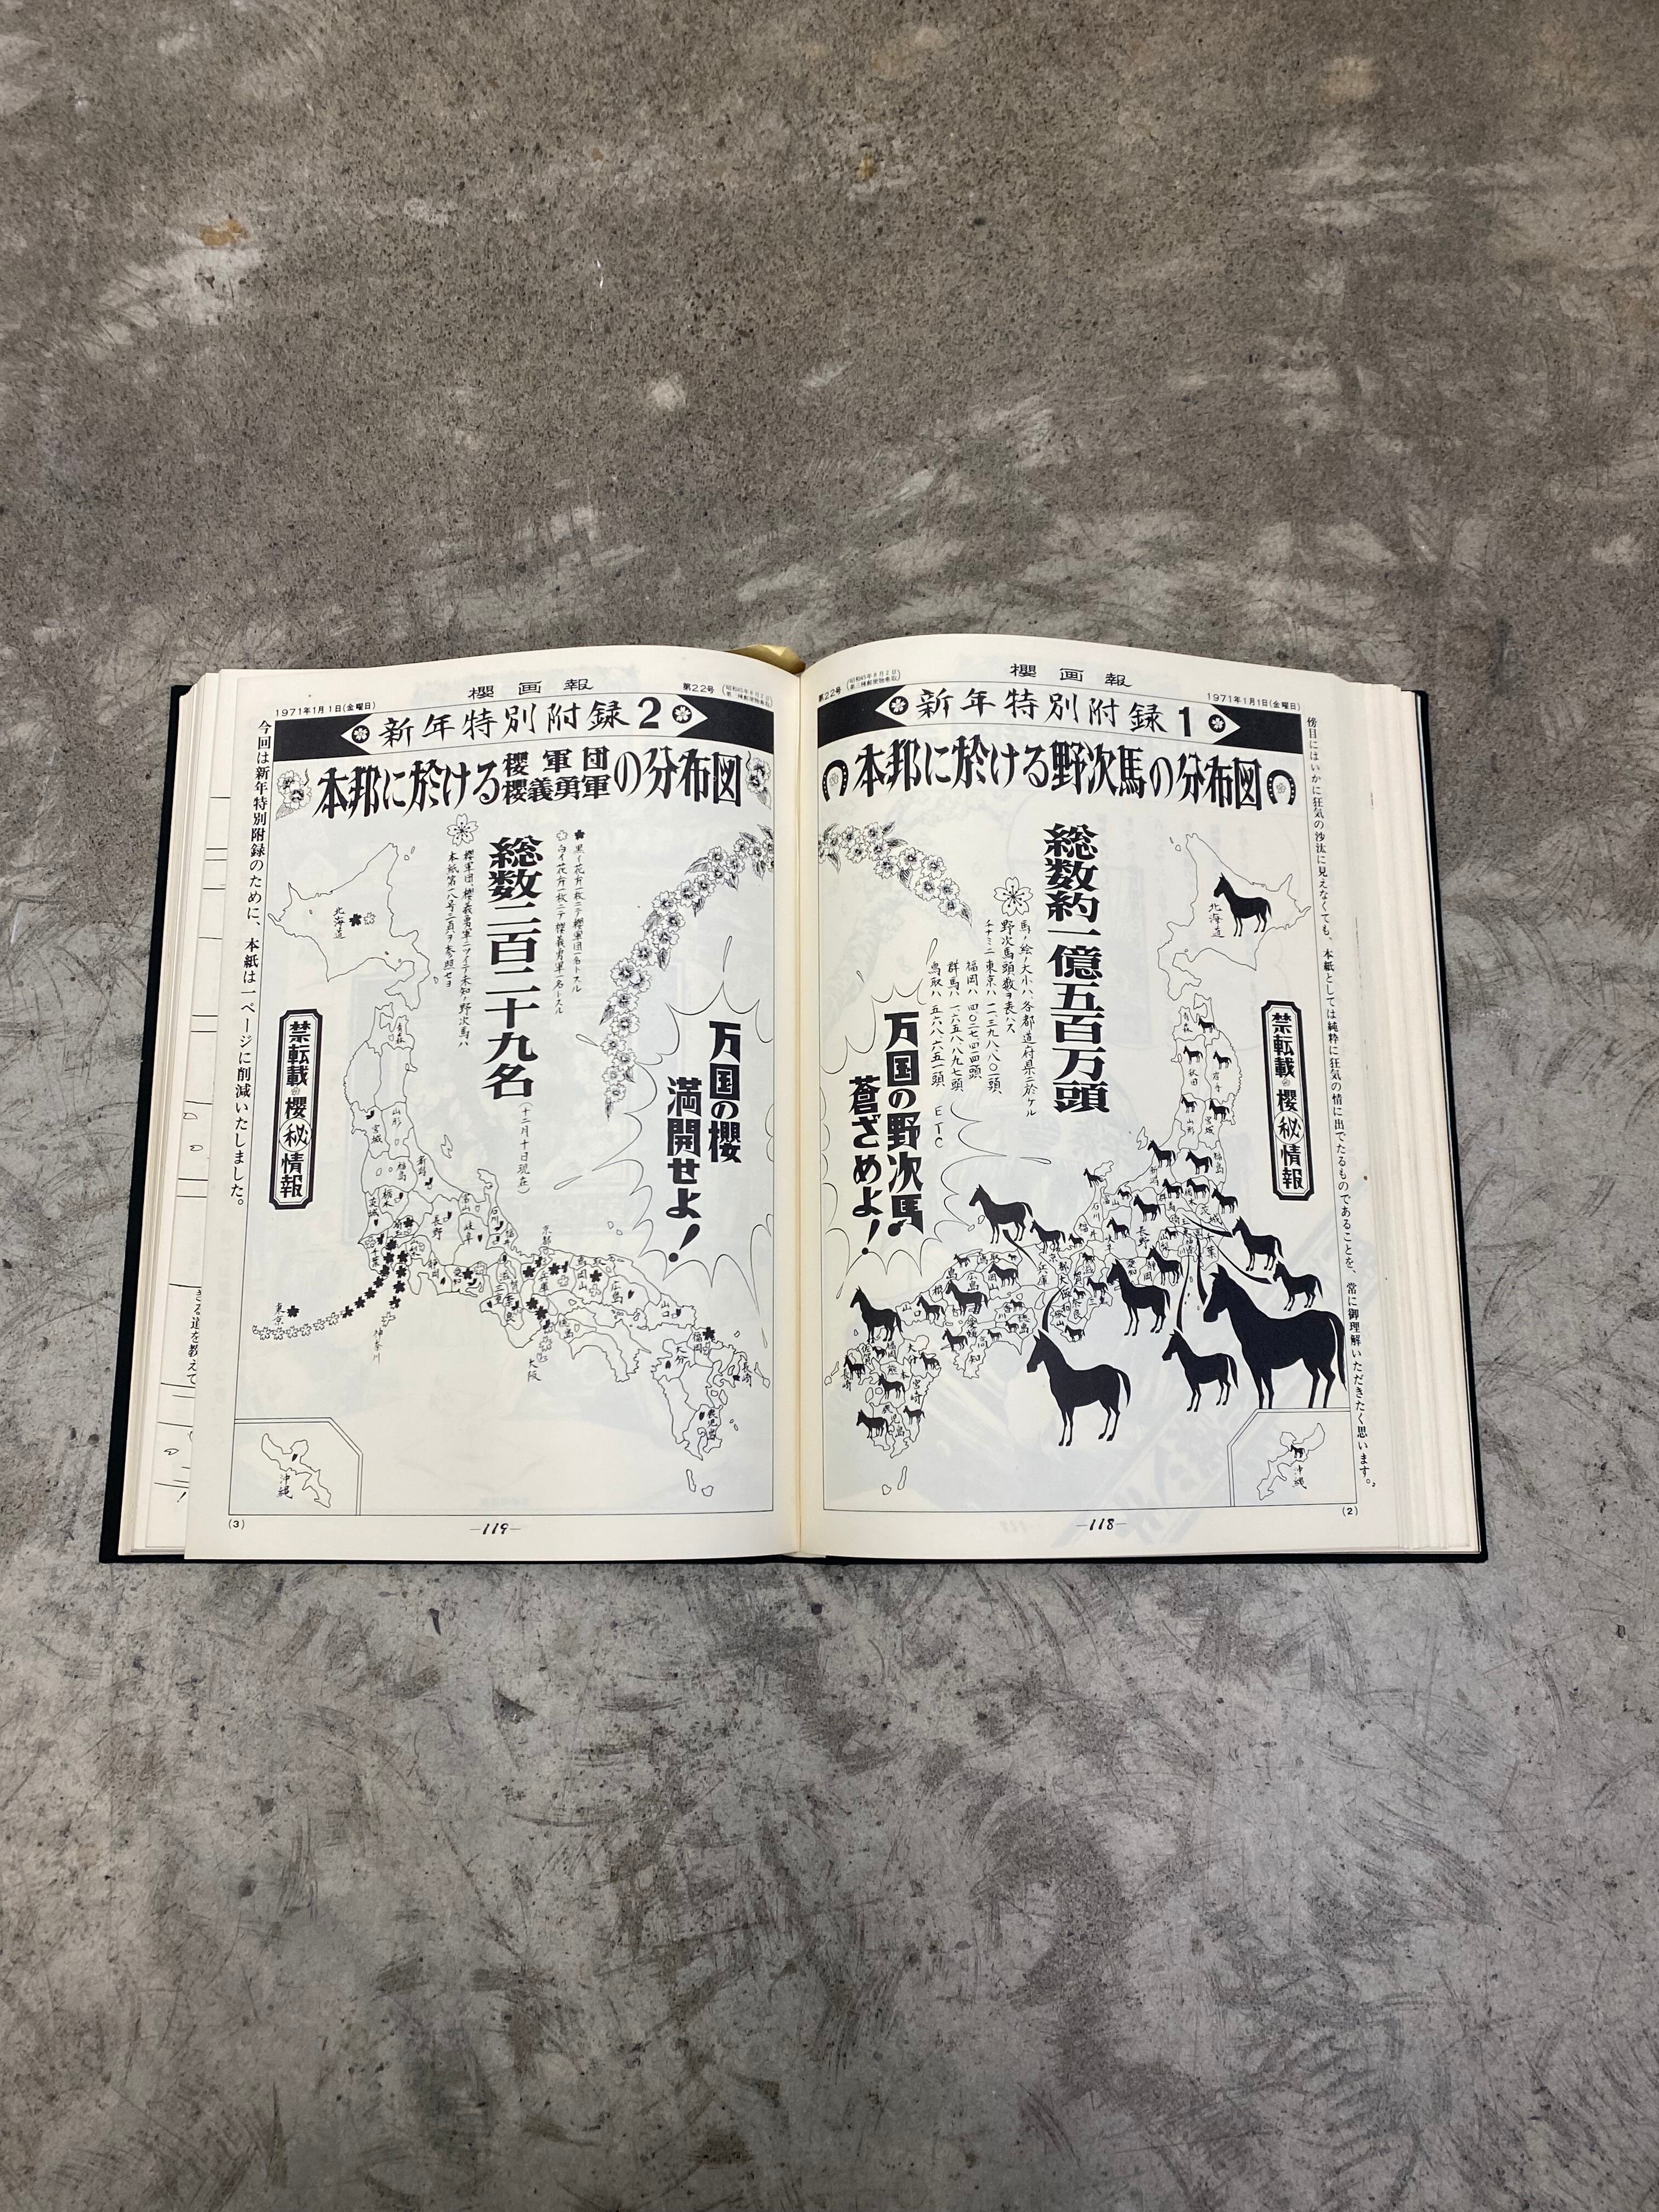 櫻画報
第22号
1971年1月1日(金曜日)
新年特別附録1
本邦に於ける野次馬の分布図
傍目にはいかに狂気の沙汰に見えなくても、本紙としては純粋に狂気の情に出でたるものであることを、常に御理解いただきたく思います。
禁転載 櫻㊙情報
総数約一億五百万頭
馬ノ絵ノ大小ハ、各都道府県ニ於ケル
野次馬頭数ヲ表ハス
チナミニ 東京ハ 一一、三九八、八〇二頭
福岡ハ 四〇二七四四頭
群馬ハ 一六五八八九七頭
鳥取ハ 五六八六五一頭 ETC
万国の野次馬
蒼ざめよ!
北海道
青森
秋田
岩手
山形
宮城
福島
新潟
茨城
千葉
石川
長野
静岡
愛知
兵庫
広島
岡山
山口
愛媛
徳島
高知
大分
福岡
熊本
宮崎
長崎
鹿児島
沖縄
(2)
—118—
櫻画報
第22号
1971年1月1日(金曜日)
新年特別附録2
本邦に於ける櫻軍団櫻義勇軍の分布図
黒イ花弁一枚ニテ櫻軍団一名トスル
白イ花弁一枚ニテ櫻義勇軍一名トスル
総数二百二十九名
(十二月十日現在)
櫻軍団、櫻義勇軍ニツイテ未知ノ野次馬ハ
本紙第一八号三頁ヲ参照セヨ
万国の櫻
満開せよ!
禁転載 櫻㊙情報
今回は新年特別附録のために、本紙は一ページに削減いたしました。
北海道
青森
山形
宮城
福島
新潟
栃木
茨城
千葉
東京
神奈川
長野
富山
石川
岐阜
福井
静岡
愛知
三重
京都
兵庫
大阪
岡山
広島
徳島
山口
福岡
大分
長崎
鹿児島
沖縄
(3)
—119—
きる道を教えて